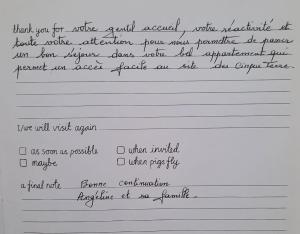 thank you for votre gentil accueil, votre réactivité et
toute votre attention pour nous permettre de passer
un bon séjour dans votre bel appartement qui
permet un accès facile au site des Cinque Terre.
I/we will visit again
as soon as possible
when invited
maybe
when pigs fly
a final note Bonne continuation
Angéline et sa famille.